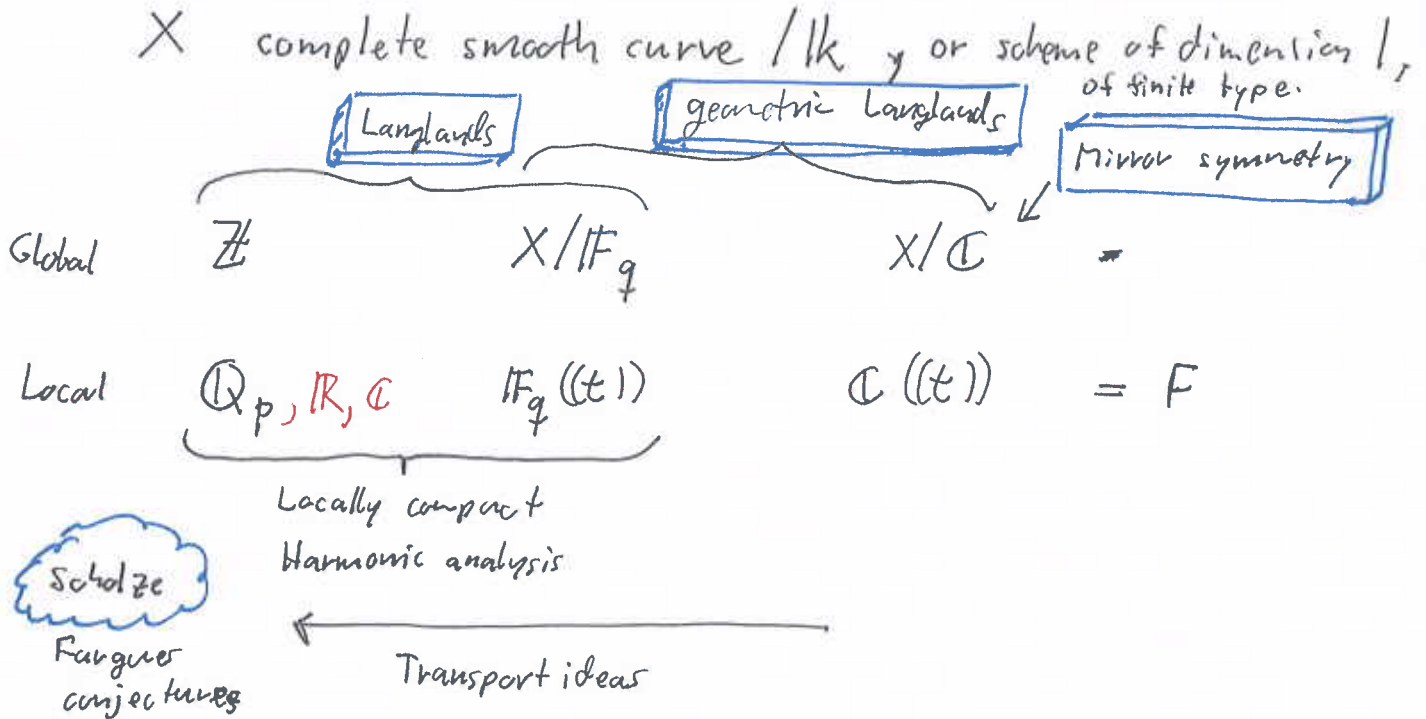 X complete smooth curve / 𝕜, or scheme of dimension 1,
of finite type.
Langlands
geometric Langlands
Mirror symmetry
Global ℤ X/𝔽_q X/ℂ
Local ℚ_p, ℝ, ℂ 𝔽_q((t)) ℂ((t)) = F
Locally compact
Harmonic analysis
Scholze
Fargues
conjectures
Transport ideas